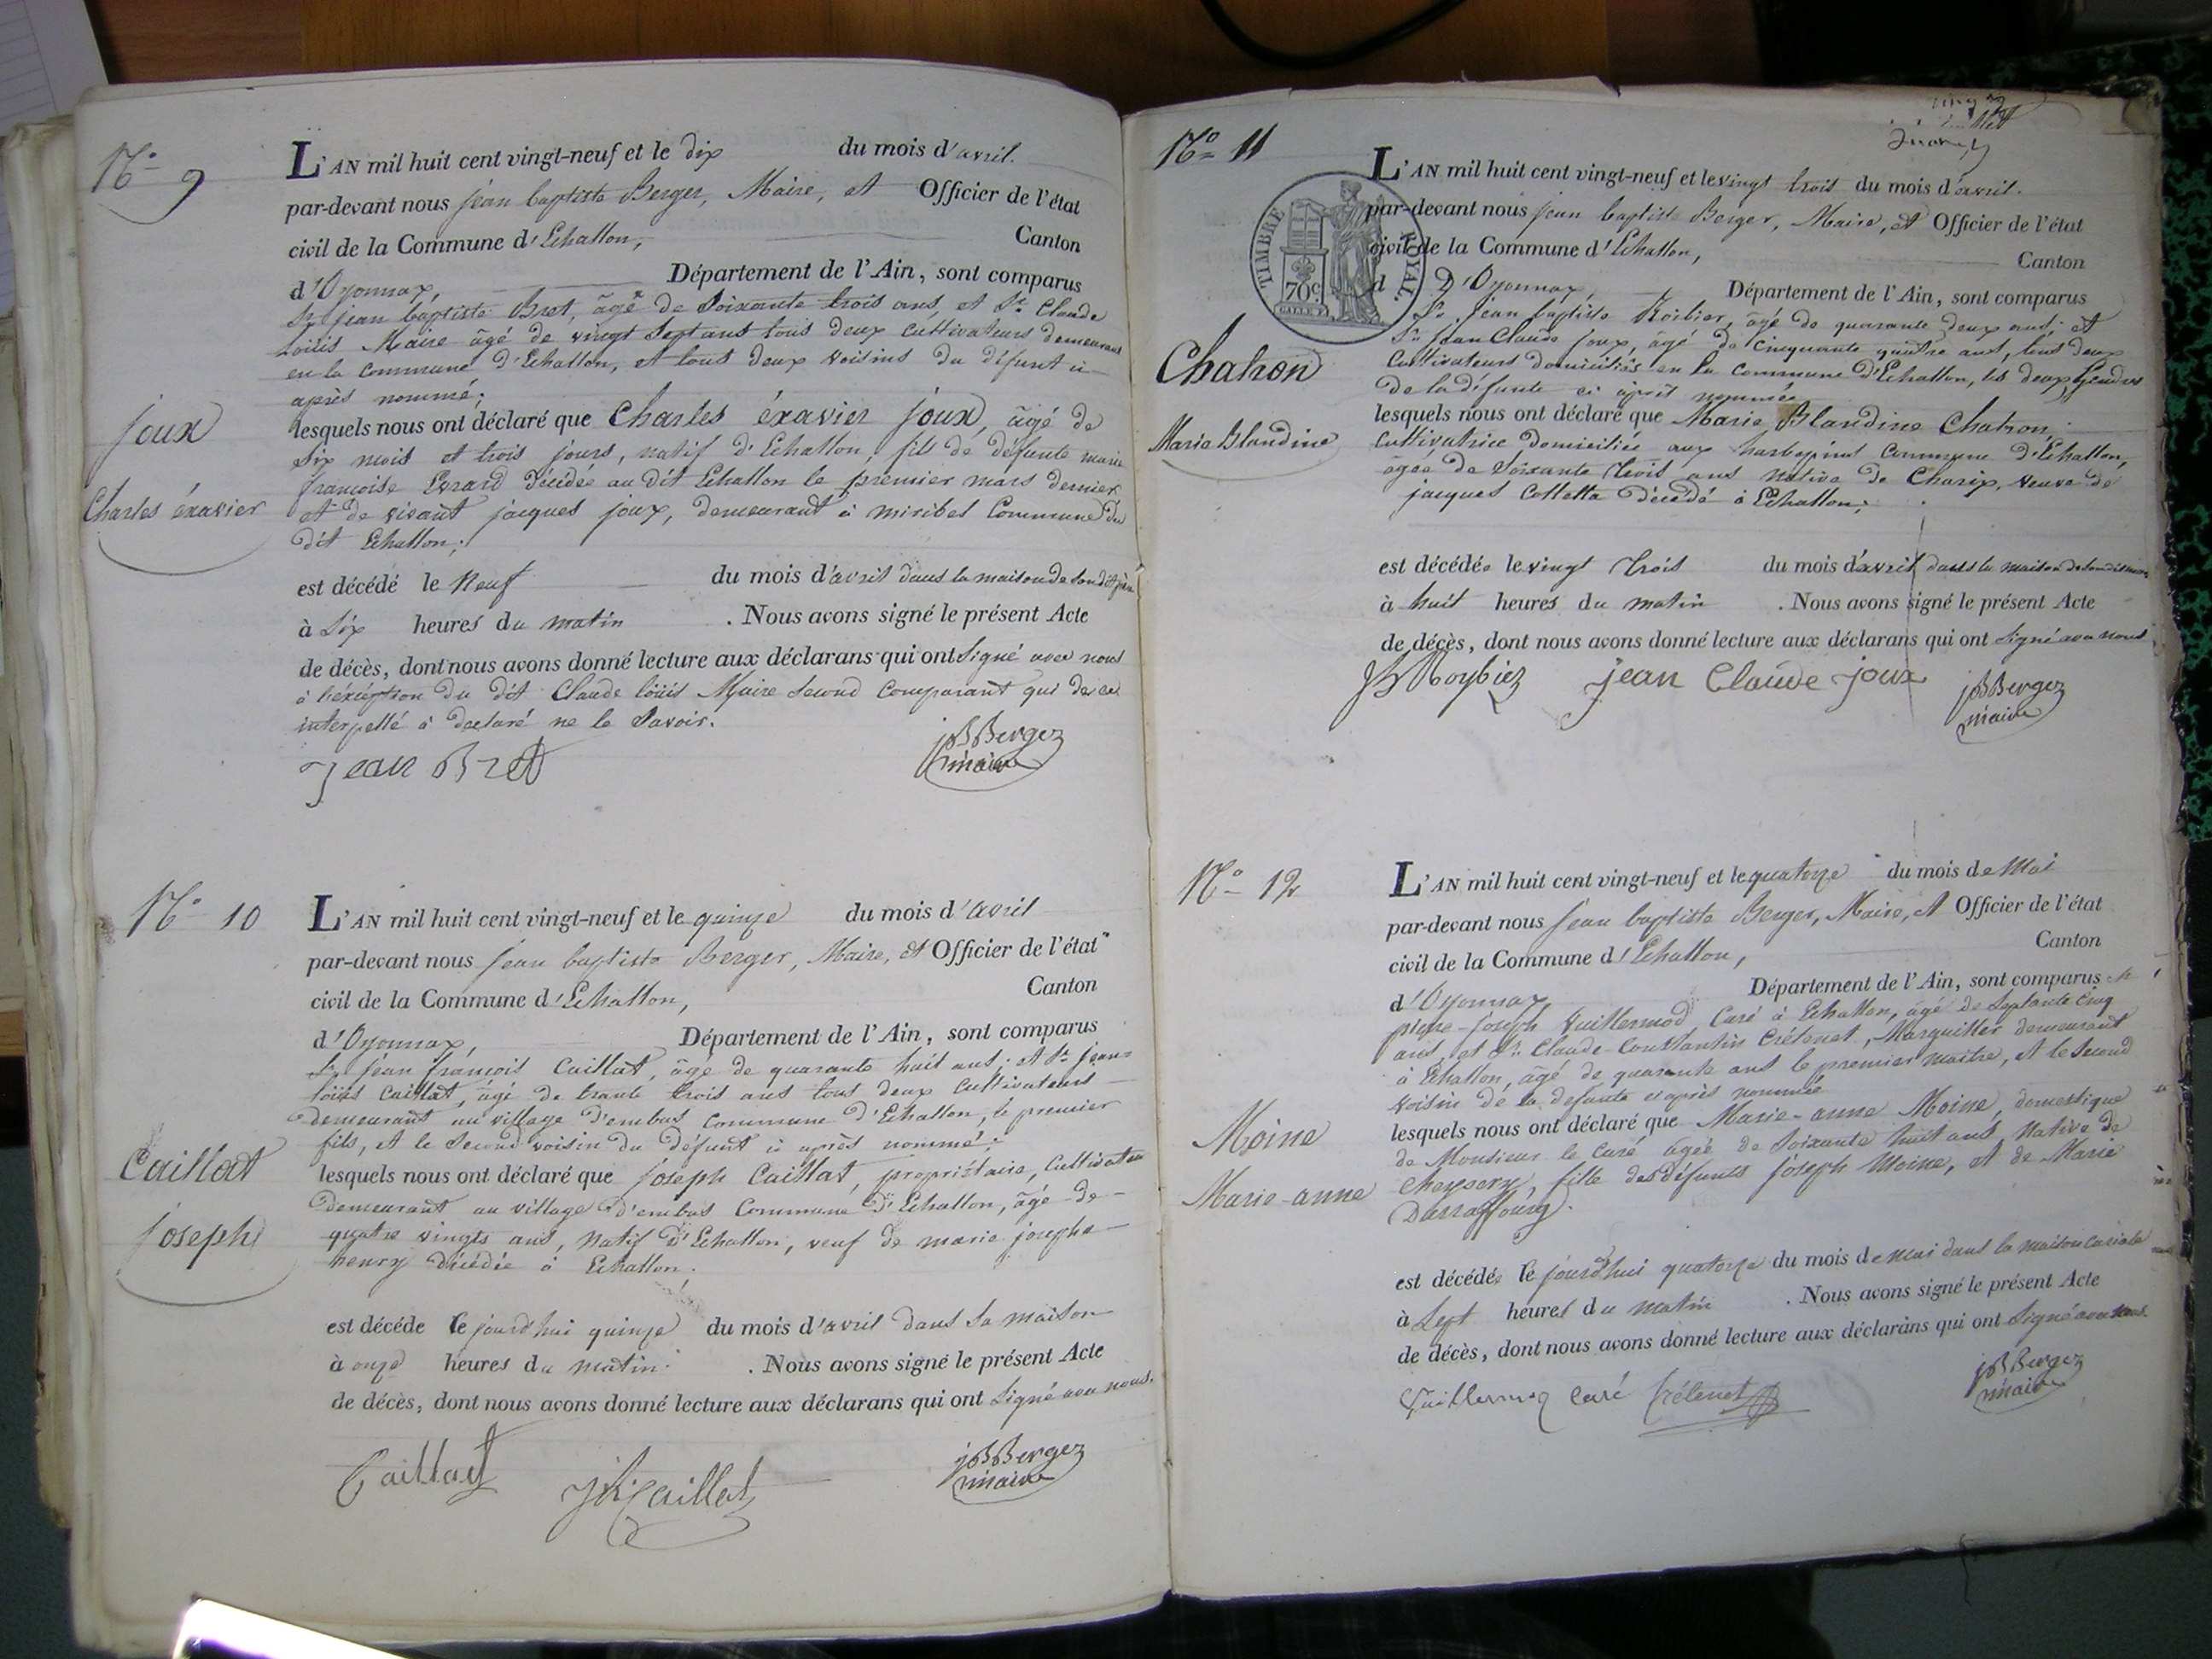 N° 9
L'AN mil huit cent vingt-neuf et le dix du mois d'avril.
par-devant nous jean baptiste Berger, Maire, et Officier de l'état
civil de la Commune d'Echallon, Canton
d'Oyonnax, Département de l'Ain, sont comparus
Sr. jean baptiste Bret, âgé de Soixante trois ans, et Sr. Claude
Loüis Maire âgé de vingt Sept ans tous deux cultivateurs demeurant
en la commune d'Echallon, et tous deux voisins du défunt ci
après nommé;
joux
Charles éxavier
lesquels nous ont déclaré que Charles éxavier joux, âgé de
Six mois et trois jours, natif d'Echallon, fils de défunte marie
françoise Evrard décédée au dit Echallon le premier mars dernier
et de vivant jacques joux, demeurant à miribel Commune du
dit Echallon;
est décédé le Neuf du mois d'avril dans la maison de son dit père
à Six heures du matin . Nous avons signé le présent Acte
de décès, dont nous avons donné lecture aux déclarans qui ont Signé avec nous
à l'éxéption du dit Claude loüis Maire Second comparant qui de ce
interpellé à déclaré ne le Savoir.
jean Bret
jB Berger
maire
N° 10
L'AN mil huit cent vingt-neuf et le quinze du mois d'avril
par-devant nous jean baptiste Berger, Maire, et Officier de l'état
civil de la Commune d'Echallon, Canton
d'Oyonnax, Département de l'Ain, sont comparus
Sr. jean françois Caillat, âgé de quarante huit ans; et Sr. jean-
loüis Caillat, âgé de trante trois ans tous deux cultivateurs
demeurant au village d'embas commune d'Echallon, le premier
fils, et le Second voisin du défunt ci après nommé;
Caillat
joseph
lesquels nous ont déclaré que joseph Caillat, propriétaire, Cultivateur
demeurant au village d'embas Commune d'Echallon, âgé de
quatre vingts ans, natif d'Echallon, veuf de marie josephe
henry décédée à Echallon;
est décédé le jourd'hui quinze du mois d'avril dans Sa maison
à onze heures du matin . Nous avons signé le présent Acte
de décès, dont nous avons donné lecture aux déclarans qui ont Signé avec nous.
Caillat
Caillat
jB Berger
maire
N° 11
TIMBRE ROYAL.
70c
L'AN mil huit cent vingt-neuf et le vingt trois du mois d'avril.
par-devant nous jean baptiste Berger, Maire, et Officier de l'état
civil de la Commune d'Echallon, Canton
d D'Oyonnax, Département de l'Ain, sont comparus
Sr. jean baptiste Roibier, âgé de quarante deux ans; et
Sr. jean Claude joux, âgé de cinquante quatre ans, tous deux
Cultivateurs domiciliés en la commune d'Echallon, les deux gendres
de la défunte ci après nommée
Chatron
Marie Blandine
lesquels nous ont déclaré que Marie Blandine Chatron,
cultivatrice domiciliée aux commune d'Echallon,
âgée de Soixante trois ans native de Charix, veuve de
jacques Colletta décédé à Echallon;
est décédée le vingt trois du mois d'avril dans la maison
à huit heures du matin . Nous avons signé le présent Acte
de décès, dont nous avons donné lecture aux déclarans qui ont Signé avec nous
jean Claude joux
jB Berger
maire
N° 12
L'AN mil huit cent vingt-neuf et le quatorze du mois de Mai
par-devant nous jean baptiste Berger, Maire, et Officier de l'état
civil de la Commune d'Echallon, Canton
d'Oyonnax, Département de l'Ain, sont comparus
pierre-joseph Vuillermod Curé à Echallon, âgé de Septante cinq
ans, et Sr. Claude-Constantin Crétenet, Marguiller demeurant
à Echallon, âgé de quarante ans le premier maitre, et le Second
voisin de la défunte ci après nommée
Moine
Marie-anne
lesquels nous ont déclaré que Marie-anne Moine, domestique
de Monsieur le Curé âgée de Soixante huit ans, Native de
Chezery, fille des défunts joseph Moine, et de Marie
Ducraffourg.
est décédée le jourd'hui quatorze du mois de mai dans la maison Curiale
à Sept heures du matin . Nous avons signé le présent Acte
de décès, dont nous avons donné lecture aux déclarans qui ont Signé avec nous.
Vuillermoz Curé Crétenet
jB Berger
maire